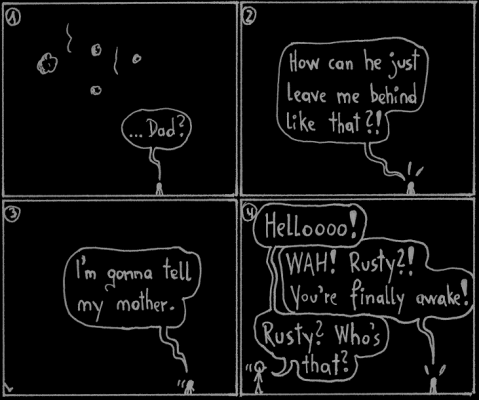 1
... Dad?
2
How can he just
leave me behind
like that?!
3
I'm gonna tell
my mother.
4
Helloooo!
WAH! Rusty?!
You're finally awake!
Rusty? Who's
that?